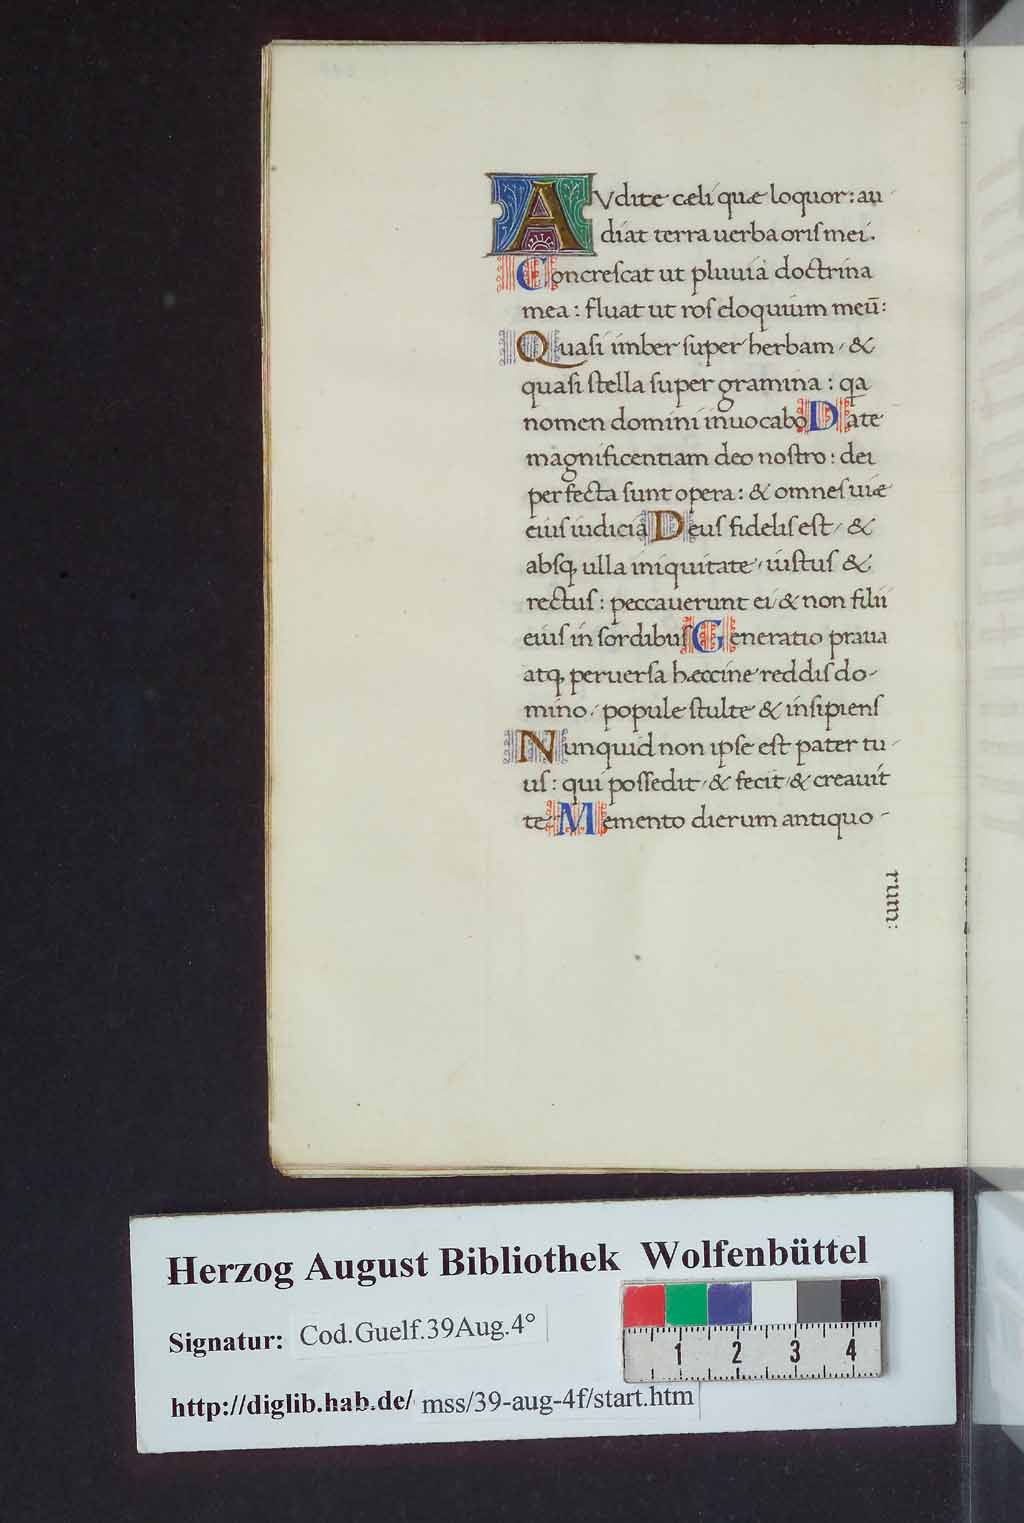 AVdite cæli quæ loquor: au-
diat terra uerba oriſ mei.
Concreſcat ut pluuia doctrina
mea: fluat ut roſ eloquium meū:
Quaſi imber ſuper herbam, &
quaſi ſtella ſuper gramina: qa
nomen domini inuocabo Date
magnificentiam deo noſtro: dei
perfecta ſunt opera: & omneſ uiæ
eiuſ iudicia Deuſ fideliſ eſt, &
abſq, ulla iniquitate, iuſtuſ &
rectuſ: peccauerunt ei & non filii
eiuſ in ſordibuſ Generatio praua
atq, peruerſa hæccine reddiſ do-
mino, popule ſtulte & inſipienſ
Nunquid non ipſe eſt pater tu-
uſ: qui poſſedit, & fecit, & creauit
te Memento dierum antiquo-
rum:
Herzog August Bibliothek Wolfenbüttel
Signatur: Cod.Guelf.39Aug.4°
http://diglib.hab.de/ mss/39-aug-4f/start.htm
1 2 3 4